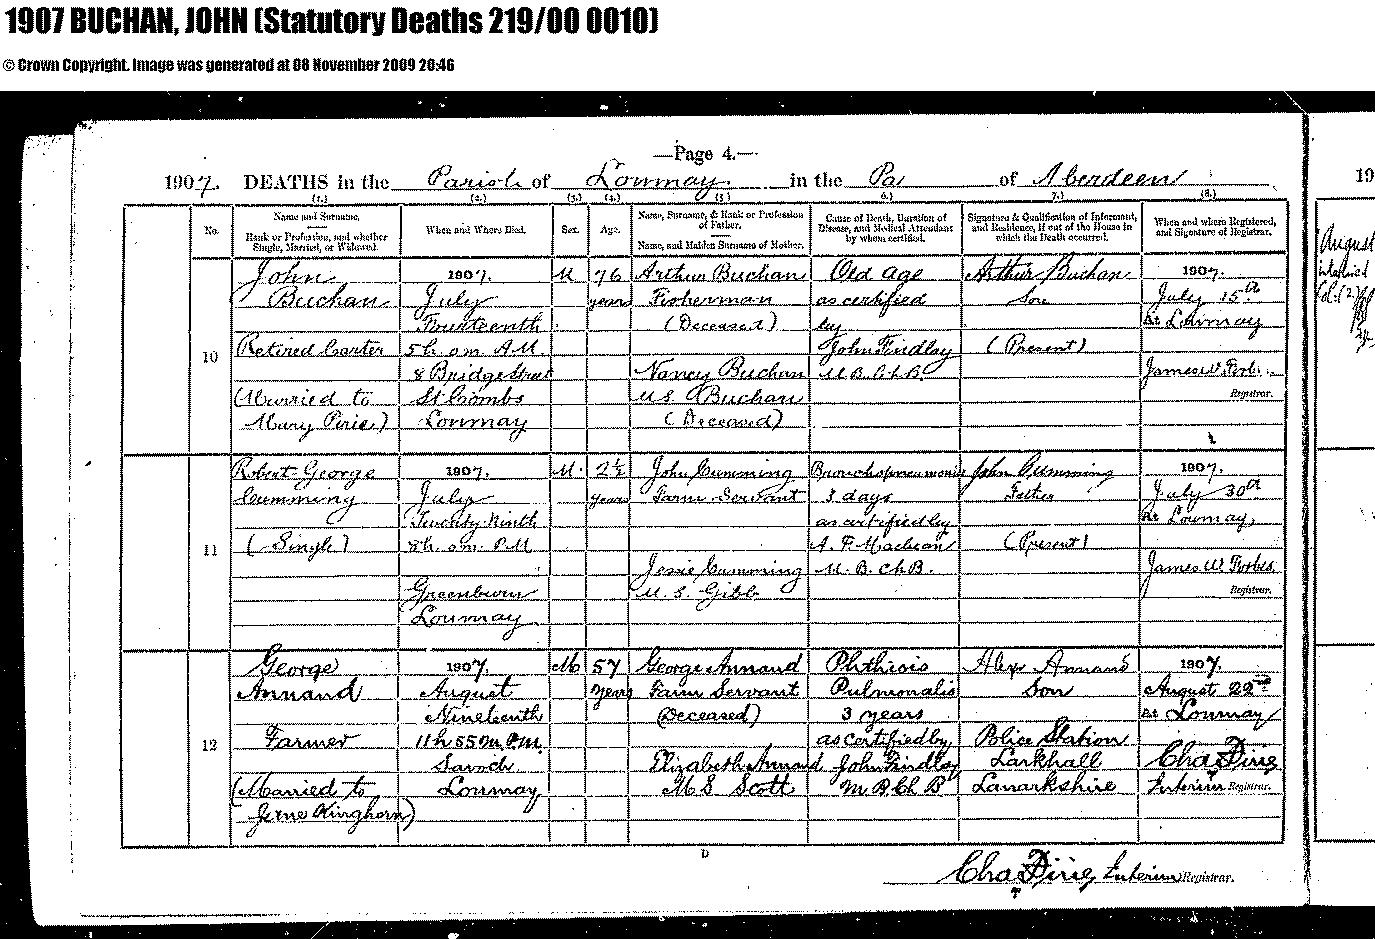 1907 BUCHAN, JOHN (Statutory Deaths 219/00 0010)
© Crown Copyright. Image was generated at 08 November 2009 20:46
—Page 4.—
1907. DEATHS in the Parish of Lonmay in the Pa of Aberdeen
19
(1.) (2.) (3.) (4.) (5.) 6.) 7.) (8.)
No.
Name and Surname,
Rank or Profession, and whether
Single, Married, or Widowed.
When and Where Died.
Sex.
Age.
Name, Surname, & Rank or Profession
of Father.
Name, and Maiden Surname of Mother.
Cause of Death, Duration of
Disease, and Medical Attendant
by whom certified.
Signature & Qualification of Informant,
and Residence, if out of the House in
which the Death occurred.
When and where Registered,
and Signature of Registrar.
10
John
Buchan
Retired Carter
(Married to
Mary Pirie)
1907.
July
Fourteenth
5h. om. A.M.
8 Bridge Street
St Combs
Lonmay
M
76
years
Arthur Buchan
Fisherman
(Deceased)
Nancy Buchan
M.S. Buchan
(Deceased)
Old age
as certified
by
John Findlay
M.B. Ch.B.
Arthur Buchan
Son
(Present)
1907.
July 15th
At Lonmay
James W. Forbes
Registrar.
11
Robert George
Cumming
(Single)
1907.
July
Twenty Ninth
8h. om. P.M.
Greenburn
Lonmay
M.
2½
years
John Cumming
Farm Servant
Jessie Cumming
M.S. Gibb
Bronchopneumonia
3 days
as certified by
A. F. Maclean
M.B. Ch.B.
John Cumming
Father
(Present)
1907.
July 30th
At Lonmay
James W. Forbes
Registrar.
12
George
Annand
Farmer
(Married to
Jane Kinghorn)
1907.
August
Nineteenth
11h 55m. P.M.
Lonmay
M
57
years
George Annand
Farm Servant
(Deceased)
Elizabeth Annand
M.S. Scott
Phthisis
Pulmonalis
3 years
as certified by
John Findlay
M.B. Ch B
Alexr Annand
Son
Police Station
Larkhall
Lanarkshire
1907.
August 22nd
At Lonmay
Chas Pirie
Interim Registrar.
D
Chas Pirie, Interim Registrar.
August